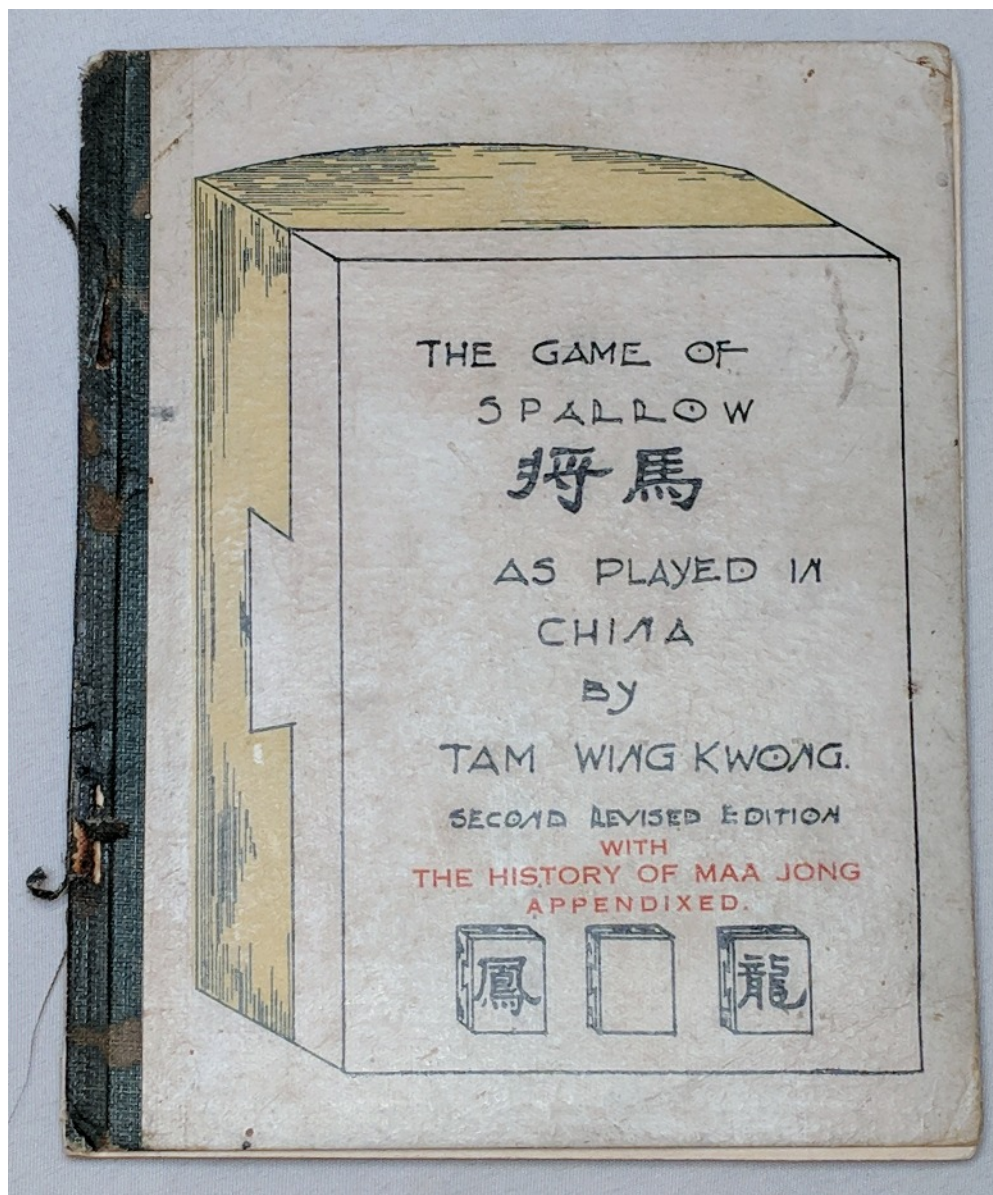 THE GAME OF
SPARROW
馬将
AS PLAYED IN
CHINA
BY
TAM WING KWONG.
SECOND REVISED EDITION
WITH
THE HISTORY OF MAA JONG
APPENDIXED.
鳳 龍